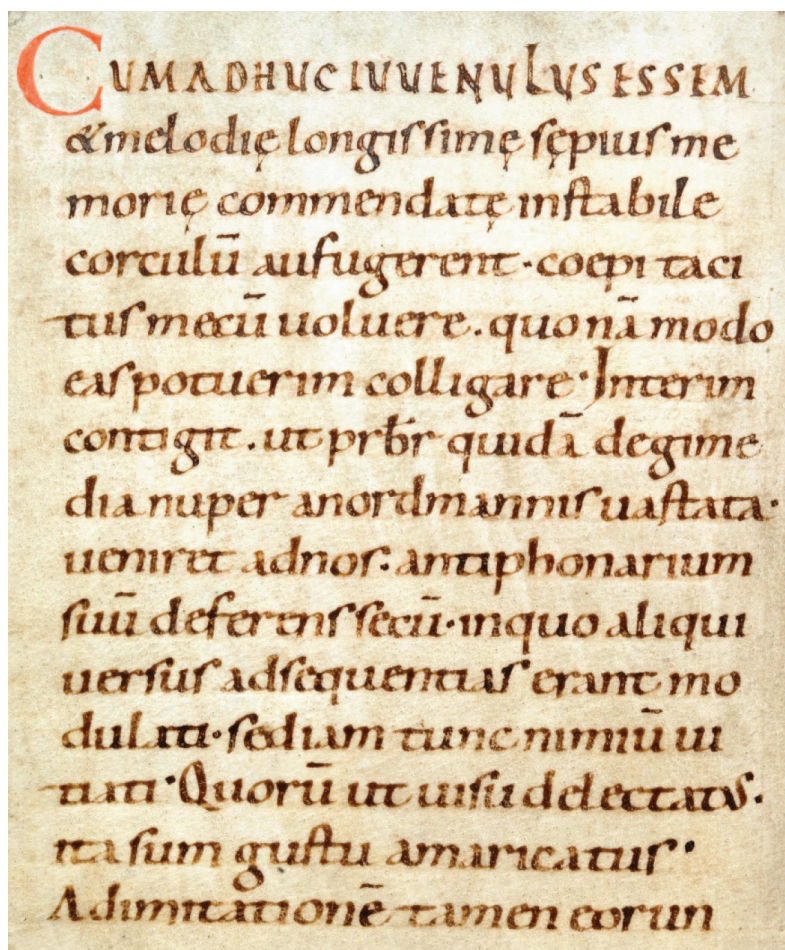 CUM ADHUC IUUENULUS ESSEM
& melodię longissimę sępius me
morię commendatę instabile
corculū aufugerent· coepi taci
tus mecū uoluere. quonā modo
eas potuerim colligare· Interim
contigit. ut prƀr quidā degime
dia nuper anordmannis uastata·
ueniret adnos: antiphonarium
suū deferens secū· inquo aliqui
uersus adsequentias erant mo
dulati· sed iam tunc nimiū ui
tiati· Quorū ut uisu delectatus·
ita sum gustu amaricatus·
Adimitationē tamen eorun